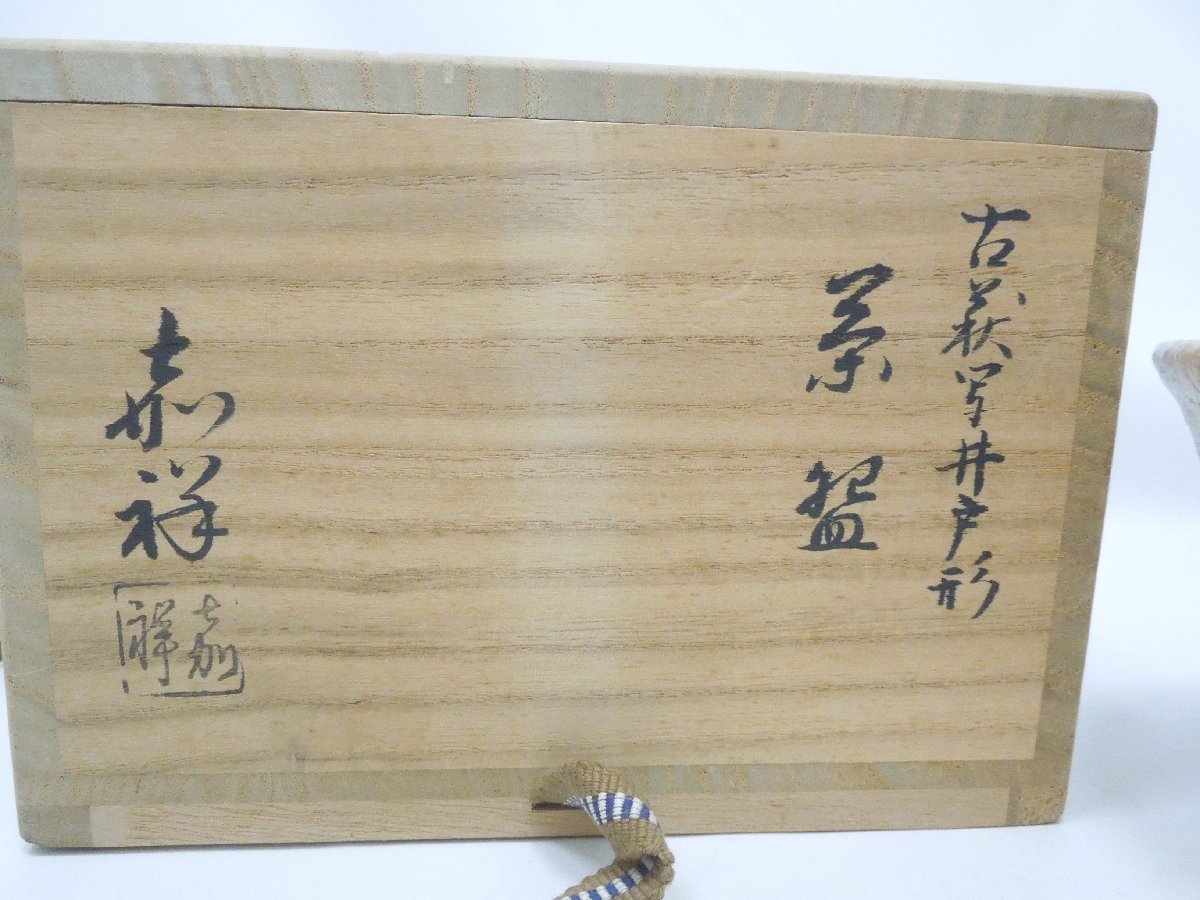 古萩写井戸形
茶盌
嘉祥
嘉祥